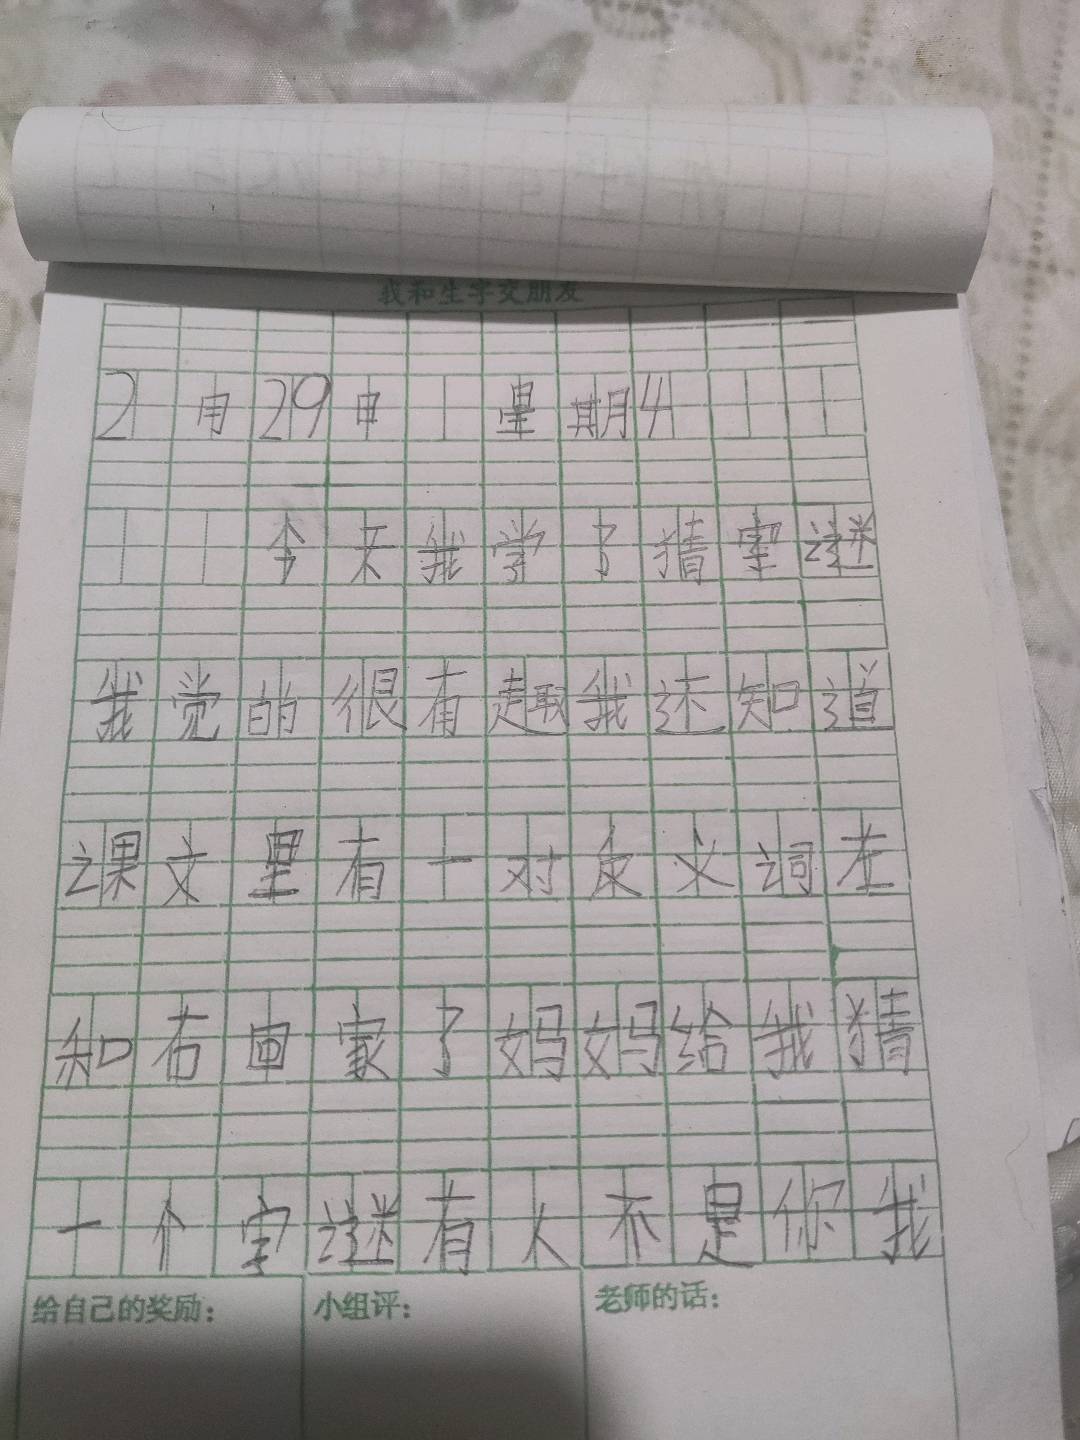 我和生字交朋友
2月29日 星期4
今天我学了猜字谜
我觉的很有趣我还知道
课文里有一对反义词左
和右回家了妈妈给我猜
一个字谜有人不是你我
给自己的奖励:
小组评:
老师的话: